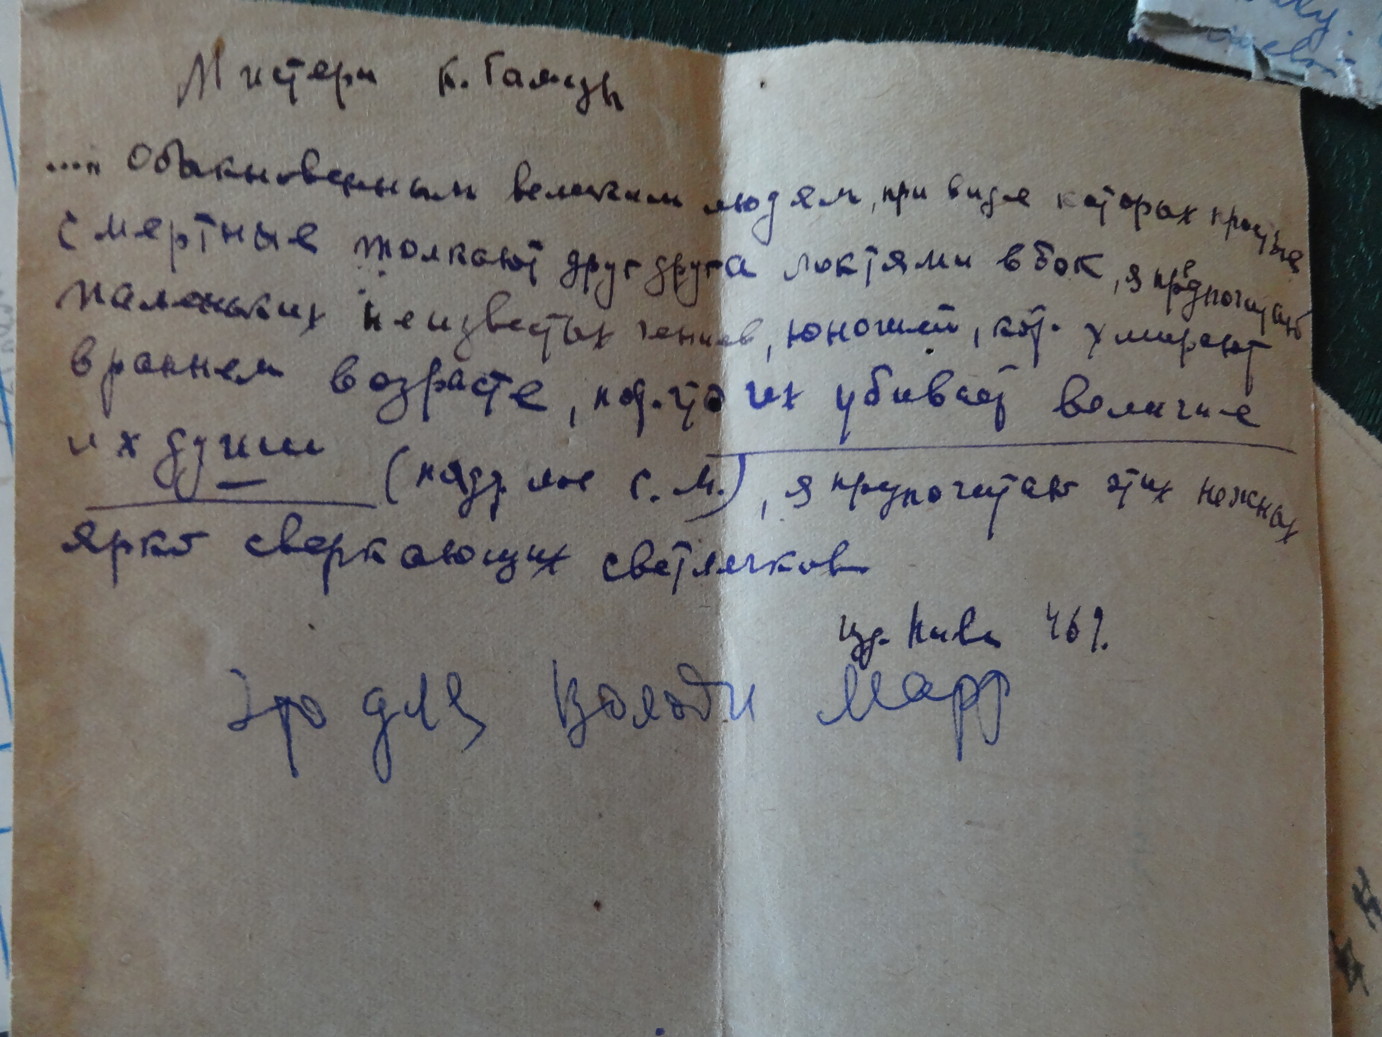 Мистерии К. Гамсун
.... Обыкновенным великим людям, при виде которых простые
смертные толкают друг друга локтями в бок, я предпочитаю
маленьких неизвестных гениев, юношей, кот. умирают
в раннем возрасте, пот. что их убивает величие
их души (подд. мое С. М.), я предпочитаю этих нежных
ярко сверкающих светлячков
изд. Нива 461.
Это для Володи Марр